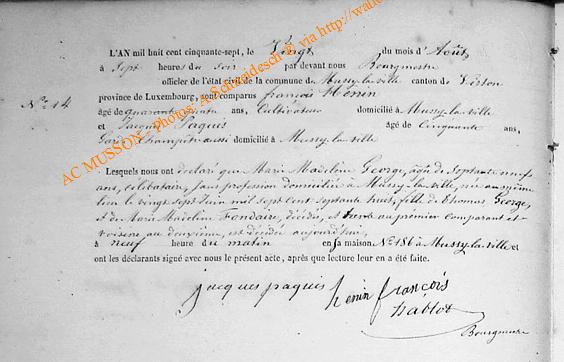 L'AN mil huit cent cinquante-sept, le Vingt du mois d'Août,
à Sept heures du Soir par devant nous Bourgmestre
officier de l'état civil de la commune de Mussy-la-ville canton de Virton
N° 14
province de Luxembourg, sont comparus françois Henin
âgé de quarante quatre ans, Cultivateur domicilié à Mussy-la-ville
et Jacques Paquis âgé de Cinquante ans,
Garde Champêtre aussi domicilié à Mussy-la-ville
Lesquels nous ont déclaré que Marie Madeleine George, agée de Septante neuf
ans, célibataire, sans profession domiciliée à Mussy-la-ville, née au même
lieu le vingt sept Juin mil sept cent septante huit, fille de Thomas George,
et de Marie Madeleine Fondaire, décédés, et tante au premier comparant et
voisine au deuxième, est décédée aujourd'hui,
à neuf heure du matin en sa maison N° 186 à Mussy-la-ville et
ont les déclarants signé avec nous le présent acte, après que lecture leur en a été faite.
jacques paquis henin françois
Bourgmestre
AC MUSSON - Photos: A Schmidesch © via http://wall